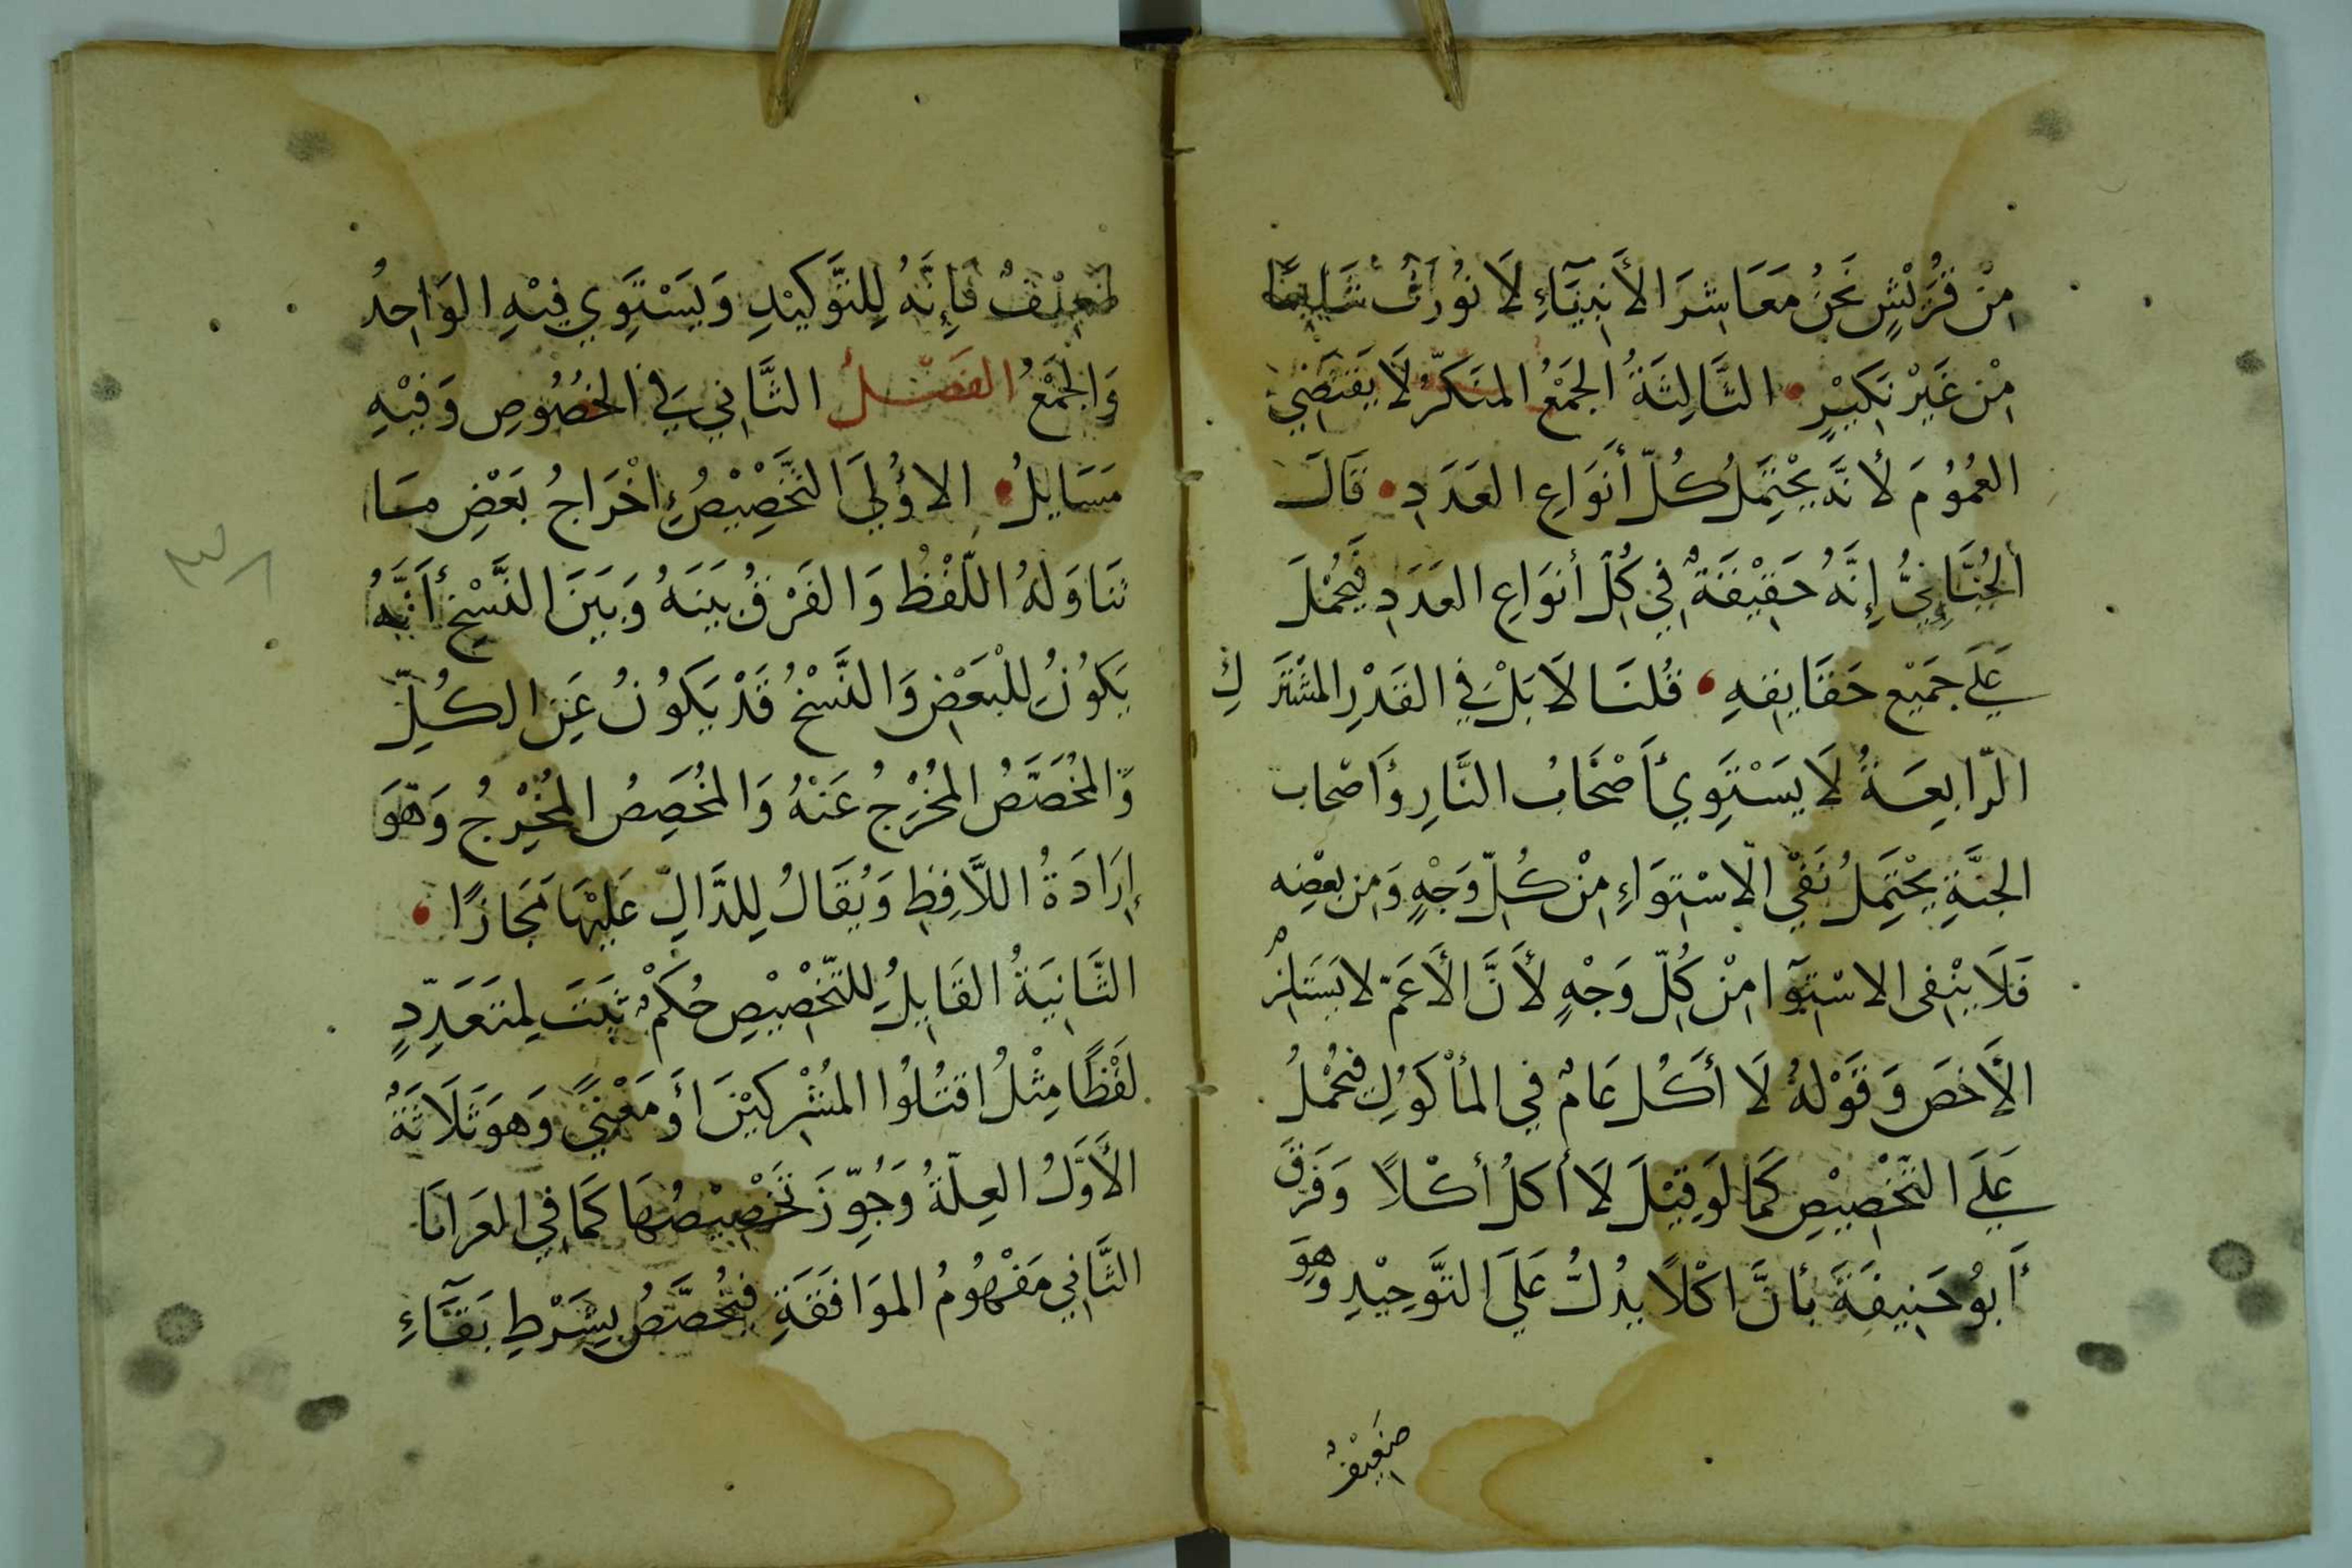 مِنْ قُرَيْشٍ نَحْنُ مَعَاشِرَ الأَنْبِيَآءِ لَا نُوْرَثُ شَايعًا
مِنْ غَيْرِ نَكِيْرٍ • الثَّالِثَةُ الجَمْعُ المنَكَّرُ لَا يَقتَضِيْ
العُمُوُمَ لأنَّهُ يَحْتَمِلُ كُلَّ أَنوَاعِ العَدَدِ • قَالَ
الجُبَّائِيُّ إِنَّهُ حَقِيْقَةٌ فِي كُلِّ أنوَاعِ العَدَدِ فَيُحْمَلَ
عَلَي جَمِيْعِ حَقَايِقِهِ • قُلنَا لَا بَلْ فِي القَدْرِ المشْتَرَكِ
الرّابِعَةُ لَا يَسْتَوِي أَصْحَابُ النَّارِ وأَصْحَاب
الجَنَّةِ يَحْتَمِلُ نَفْيَ الاسْتِوَاءِ مِنْ كُلِّ وَجْهٍ وَمِن بعْضِه
فَلَا يَنْفِى الاسْتِوَآ مِنْ كُلِّ وَجْهٍ لأَنَّ الأَعَمَّ لا يَسْتَلزِمُ
الأَخَصَ وَقَوْلهُ لَا أَكُل عَامٌ فِي المأْكوُلِ فَيُحْمَلُ
عَلَي التَخْصِيْصِ كَمَا لَو قِيْلَ لَا أكَلُ أكْلاً وَفَرَقَ
أَبُو حَنِيفَةَ بأنَّ اكْلاً يدُلُّ عَلَي التَّوحِيْدِ وَهوَ
ضَعِيْفٌ
ضَعِيْفٌ فَإِنَّهُ لِلتَّوكِيْدِ وَيَسْتَوِي فِيْهِ الوَاحِدُ
وَالجَمْعُ الفَصْلُ الثَّانِي فِي الخُصُوصِ وَفِيْهِ
مَسَايِلُ • الاوُلَي التَّخْصِيْصُ إِخْرَاجُ بَعْضِ مَا
تَنَاوَلَهُ اللَّفْظُ وَالفَرْقُ بَينَهُ وَبَيَنَ النَّسْخِ أَنَّهُ
يَكوُنُ لِلْبَعْضِ وَالنَّسْخُ قَدْ يَكوُنُ عَنِ الكُلِّ
وَالمُخَصَّصُ المُخْرَجُ عَنْهُ وَالمُخَصِصُ المُخْرِجُ وَهْوَ
إِرَادَةُ اللَّافِظِ وَيُقَالُ لِلدَّالِ عَلَيْهَا مَجَازًا •
الثَّانِيَةُ القَابِلُ لِلتّخْصِيْصِ حُكمٌ ثَبَتَ لِمتَعَدِّدٍ
لَفْظًا مِثْلُ اقتُلُوا المُشْرِكيْنَ أَو مَعْنيً وَهوَ ثَلَاثَةُ
الأَوَّلُ العِلّةُ وَجُوّزَ تَخْصِيْصُهَا كَمَا فِي العَرَايَا
الثَّانِي مَفْهُومُ الموَافَقَةِ فيُخَصَّصُ بِشَرْطِ بَقَآءِ